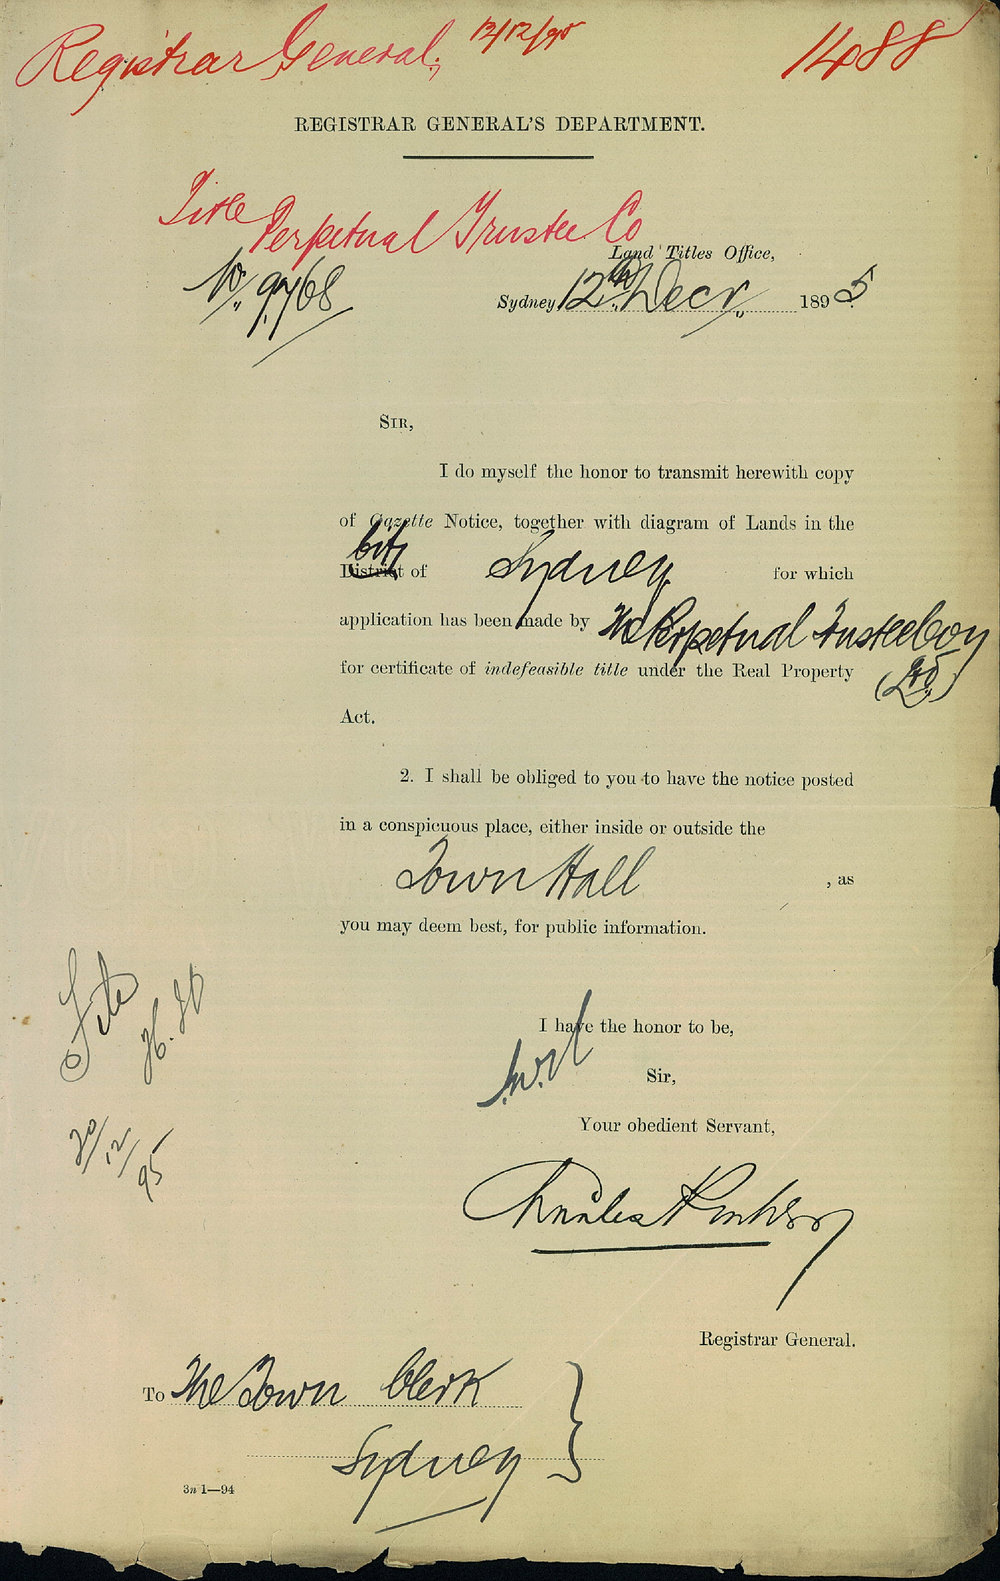 Registrar General; 12/12/95
1488
REGISTRAR GENERAL'S DEPARTMENT.
Title
Perpetual Trustee Co
Land Titles Office,
No. 9768
Sydney, 12th Decr. 1895
SIR,
I do myself the honor to transmit herewith copy
of Gazette Notice, together with diagram of Lands in the
City
District of Sydney for which
application has been made by The Perpetual Trustee Coy
(Ltd)
for certificate of indefeasible title under the Real Property
Act.
2. I shall be obliged to you to have the notice posted
in a conspicuous place, either inside or outside the
Town Hall , as
you may deem best, for public information.
File
I have the honor to be,
Sir,
Your obedient Servant,
20/12/95
Charles
Registrar General.
To The Town Clerk
Sydney
3n 1—94